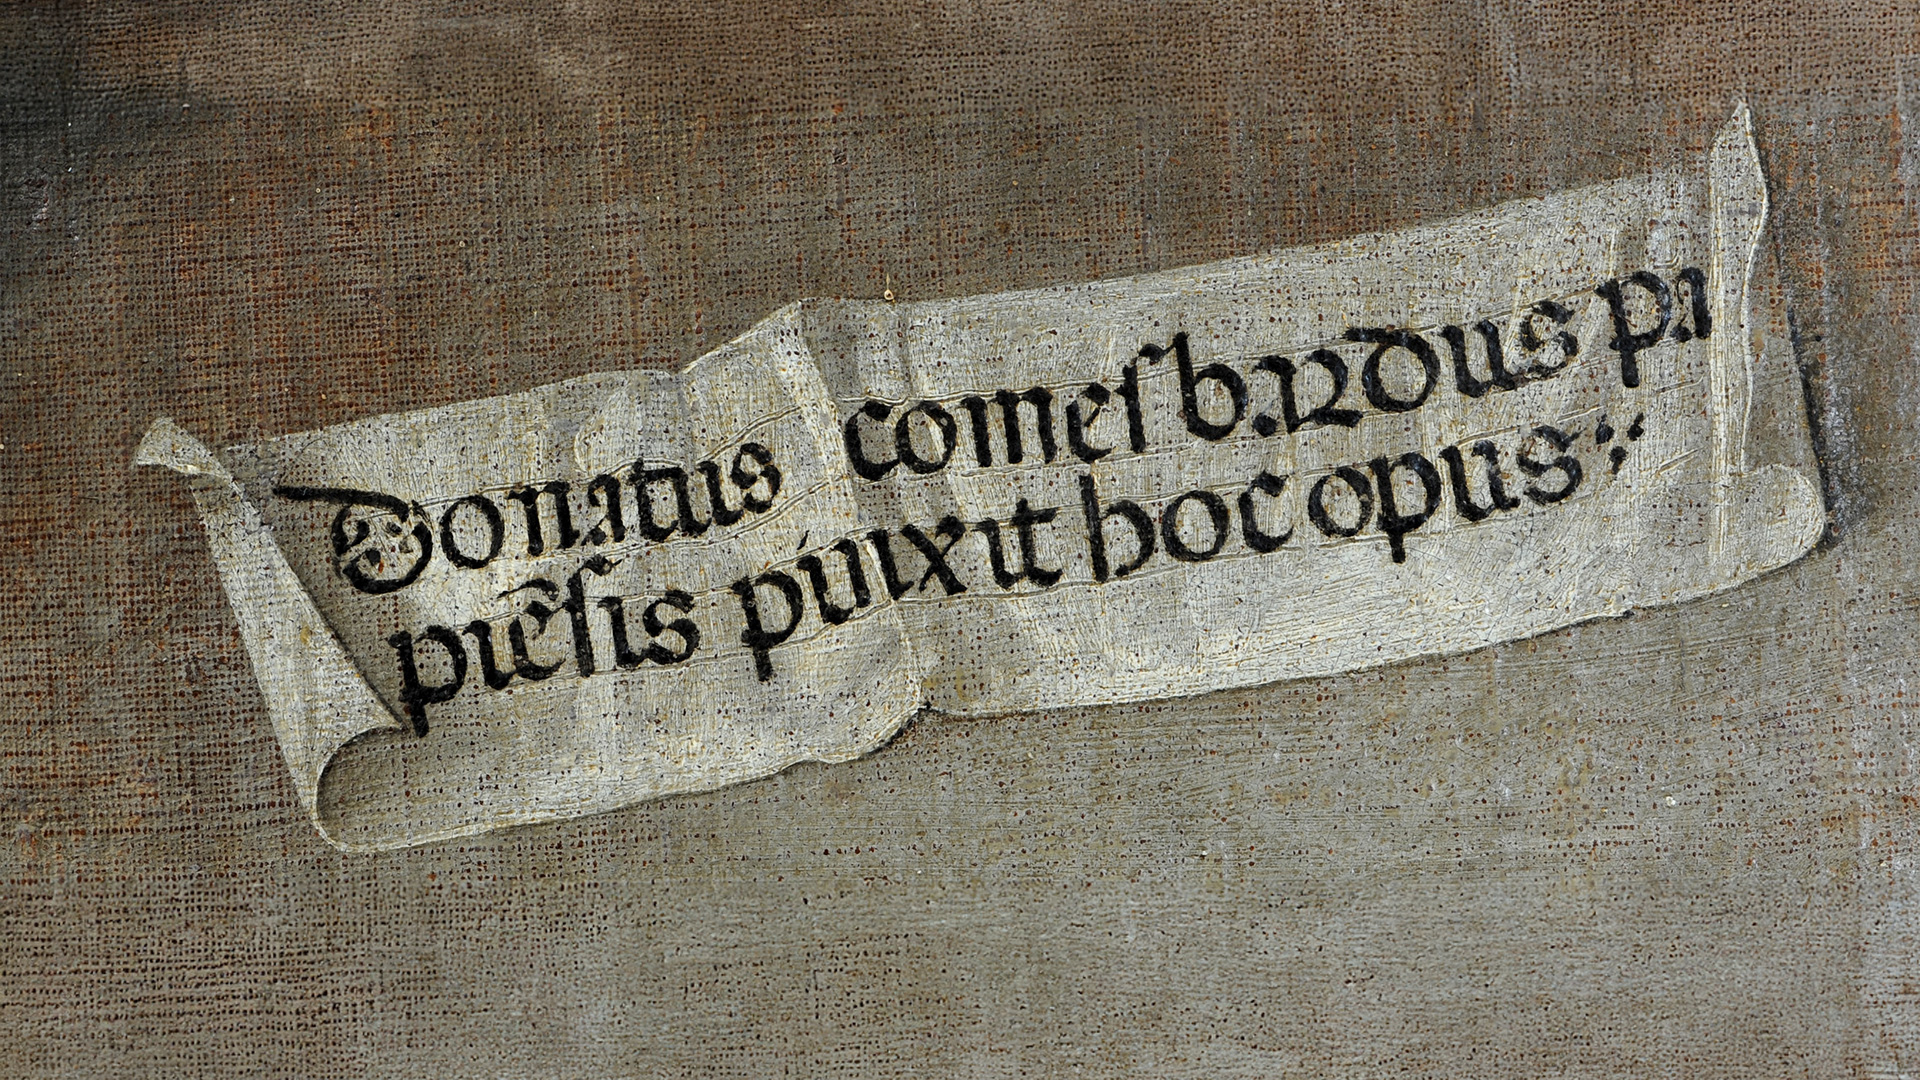 Donatus comeſbardus pa
piẽſis pinxit hoc opus